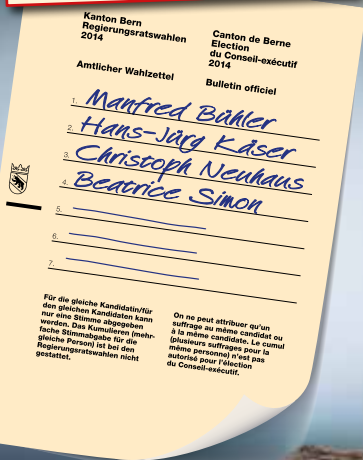 Kanton Bern
Regierungsratswahlen
2014
Canton de Berne
Election
du Conseil-exécutif
2014
Amtlicher Wahlzettel
Bulletin officiel
1. Manfred Bühler
2. Hans-Jürg Käser
3. Christoph Neuhaus
4. Beatrice Simon
5.
6.
7.
Für die gleiche Kandidatin/für
den gleichen Kandidaten kann
nur eine Stimme abgegeben
werden. Das Kumulieren (mehr-
fache Stimmabgabe für die
gleiche Person) ist bei den
Regierungsratswahlen nicht
gestattet.
On ne peut attribuer qu'un
suffrage au même candidat ou
à la même candidate. Le cumul
(plusieurs suffrages pour la
même personne) n'est pas
autorisé pour l'élection
du Conseil-exécutif.